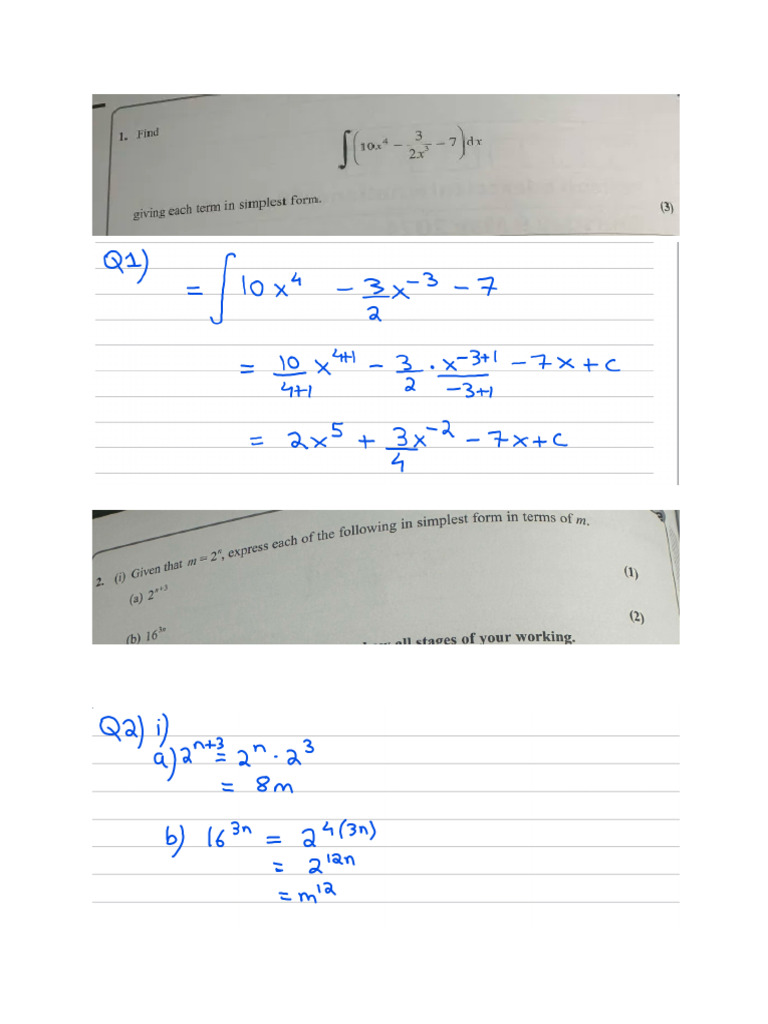 1. Find
∫(10x⁴ − 3/(2x³) − 7)dx
giving each term in simplest form.
(3)
Q1)
= ∫ 10x⁴ − 3/2 x⁻³ − 7
= 10/(4+1) x⁴⁺¹ − 3/2 · x⁻³⁺¹/(−3+1) − 7x + c
= 2x⁵ + 3/4 x⁻² − 7x + c
2. (i) Given that m = 2ⁿ, express each of the following in simplest form in terms of m.
(a) 2ⁿ⁺³
(1)
(b) 16³ⁿ
(2)
all stages of your working.
Q2) i)
a) 2ⁿ⁺³ = 2ⁿ · 2³
= 8m
b) 16³ⁿ = 2⁴⁽³ⁿ⁾
= 2¹²ⁿ
= m¹²